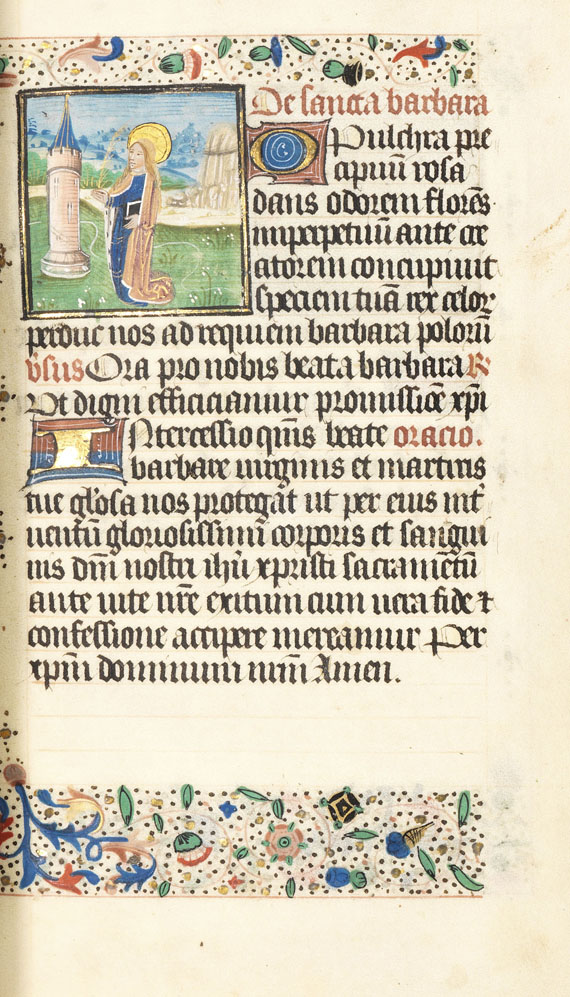 De sancta barbara
O Pulchra pre
cipuū rosa
dans odorem florēs
inperpetuū ante cre
atorem concupiuit
speciem tuā rex celoꝝ
perduc nos ad requiem barbara polorū
v̄sus Ora pro nobis beata barbara R
Vt digni efficiamur promissiōe xp̄i
INtercessio quis beate oracio.
barbare uirginis et martiris
tue gl'osa nos protegat ut per eius int'
uentū gloriosissimi corporis et sangui
nis dn̄i nostri ihū xpristi sacramētū
ante uite nr̄e exitum cum uera fide ⁊
confessione accipere mereamur Per
xp̄m dominum nrm̄ Amen.